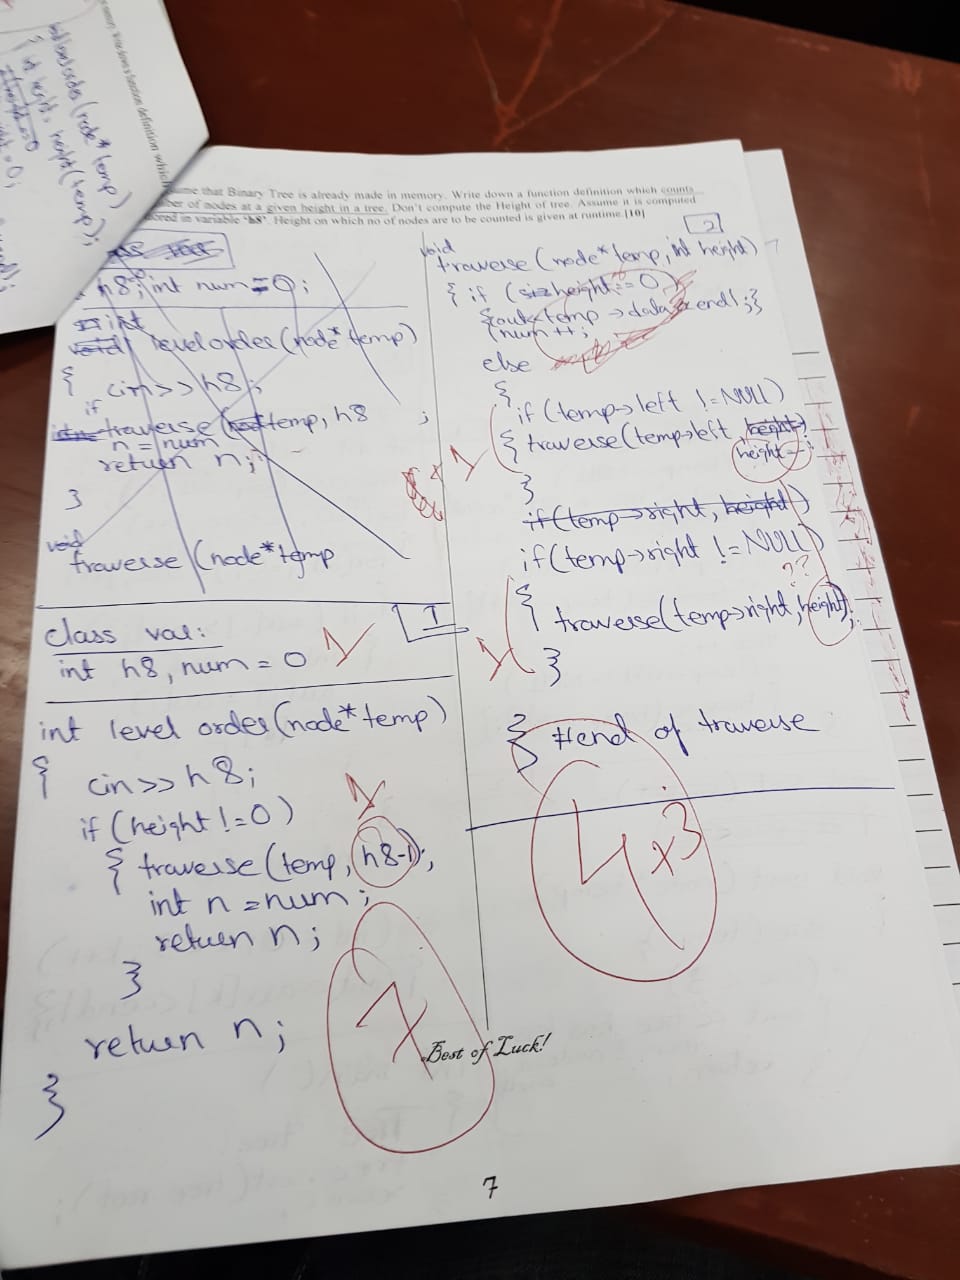 me that Binary Tree is already made in memory. Write down a function definition which counts
ber of nodes at a given height in a tree. Don't compute the Height of tree. Assume it is computed
ored in variable 'h8'. Height on which no of nodes are to be counted is given at runtime.[10]
h8, int num = 0;
int
void levelorder(node* temp)
{ cin>> h8;
if
traverse (temp, h8 ;
n = num
return n;
}
void
traverse (node* temp
1
class var:
int h8, num = 0
int level order(node* temp)
{ cin>> h8;
if (height != 0)
{ traverse (temp, h8-1);
int n = num;
return n;
}
return n;
}
7
2
void
traverse (node* temp, int height)
{ if (height == 0)
{cout<<temp->data<<endl;}
(num++;
else
{
if (temp->left != NULL)
{ traverse(temp->left, height)
height--;
}
if(temp->right, height)
if(temp->right != NULL)
??
{
traverse(temp->right, height);
}
} #end of traverse
4x3
Best of Luck!
7
levelorder (node* temp)
{ int height = height(temp);